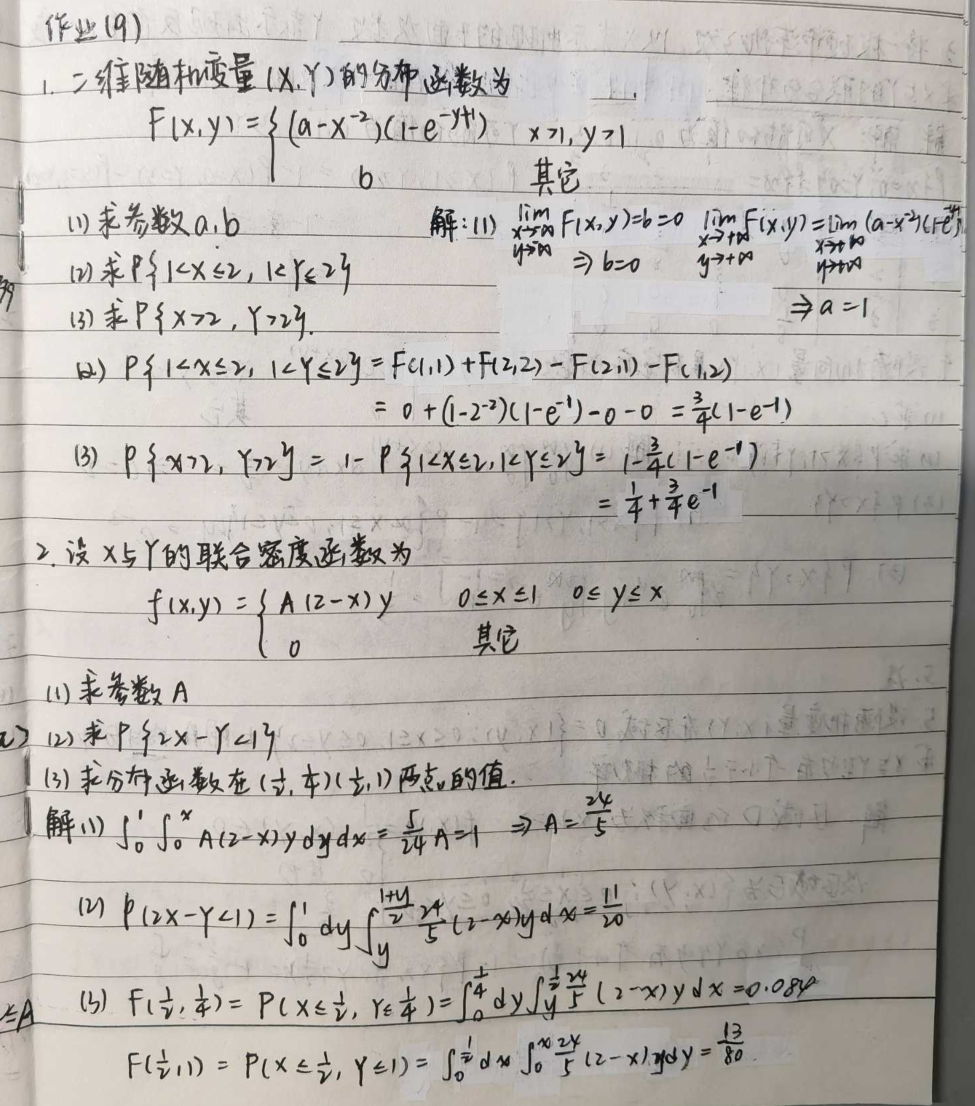 作业(9)
1. 二维随机变量(X,Y)的分布函数为
F(x,y) = { (a-x⁻²)(1-e^{-y+1})  x>1, y>1
b  其它
(1) 求参数a,b  解:(1) lim_{x→-∞, y→-∞} F(x,y)=b=0  lim_{x→+∞, y→+∞} F(x,y)=lim_{x→+∞, y→+∞} (a-x⁻²)(1-e^{-y+1})
(2) 求P{1<X≤2, 1<Y≤2}  ⇒ b=0
(3) 求P{X>2, Y>2}.  ⇒ a=1
(2) P{1<X≤2, 1<Y≤2} = F(1,1)+F(2,2)-F(2,1)-F(1,2)
= 0+(1-2⁻²)(1-e⁻¹)-0-0 = 3/4(1-e⁻¹)
(3) P{X>2, Y>2} = 1-P{1<X≤2,1<Y≤2} = 1-3/4(1-e⁻¹)
= 1/4+3/4e⁻¹
2. 设X与Y的联合密度函数为
f(x,y) = { A(2-x)y  0≤x≤1  0≤y≤x
0  其它
(1) 求参数A
(2) 求P{2X-Y<1}
(3) 求分布函数在(1/2, 1/4)(1/2, 1)两点的值.
解(1) ∫₀¹∫₀ˣ A(2-x)y dy dx = 5/24 A=1 ⇒ A=24/5
(2) P(2X-Y<1) = ∫₀¹ dy ∫_y^{(1+y)/2} 24/5 (2-x)y dx = 11/20
(3) F(1/2, 1/4) = P(X≤1/2, Y≤1/4) = ∫₀^{1/4} dy ∫_y^{1/2} 24/5 (2-x)y dx = 0.084
F(1/2,1) = P(X≤1/2, Y≤1) = ∫₀^{1/2} dx ∫₀ˣ 24/5 (2-x)y dy = 13/80